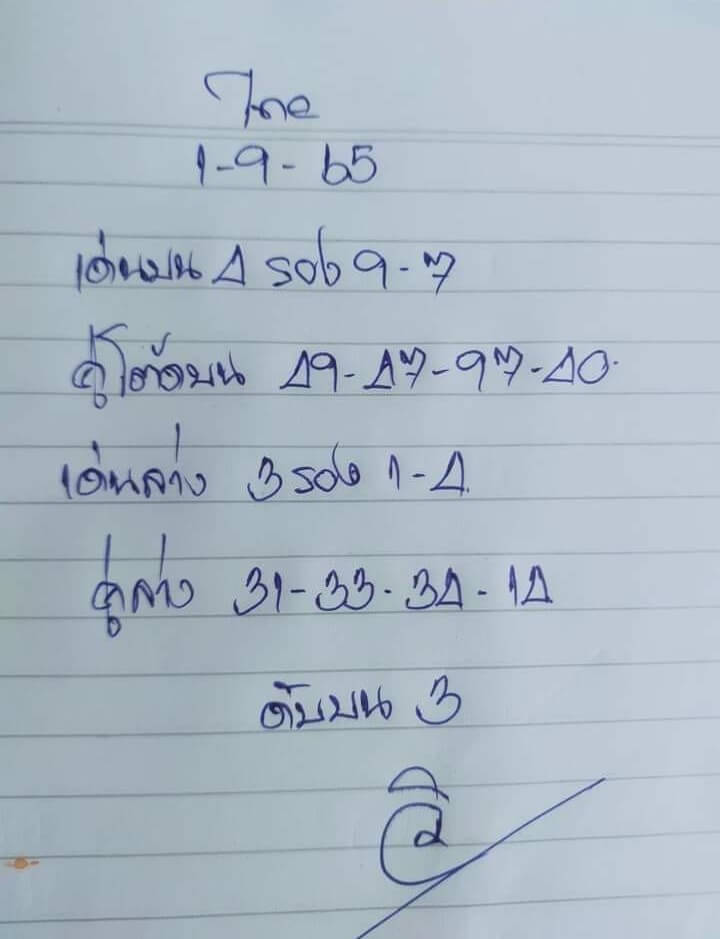 ไทย
1-9-65
เด่นบน 4 รอง 9-7
คู่โต๊ดบน 49-47-97-40
เด่นล่าง 3 รอง 1-4
คู่ล่าง 31-33-34-14
ดับบน 3